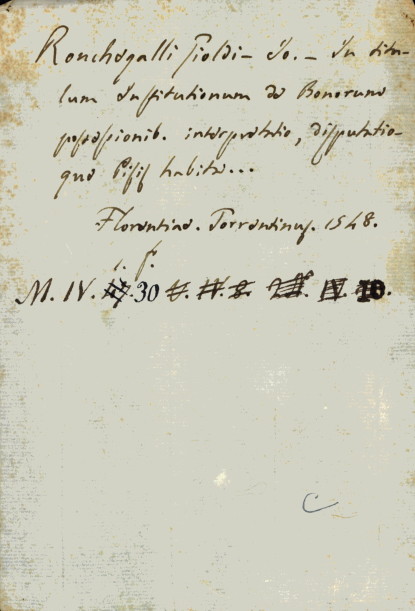 Ronchegalli Gioldi - Io. - In titu-
lum Institutionum de Bonorum
possessionib. interpretatio, disputatio-
que Pisis habita...
Florentiae. Torrentinus. 1548.
1. f.
M. IV. 30
C